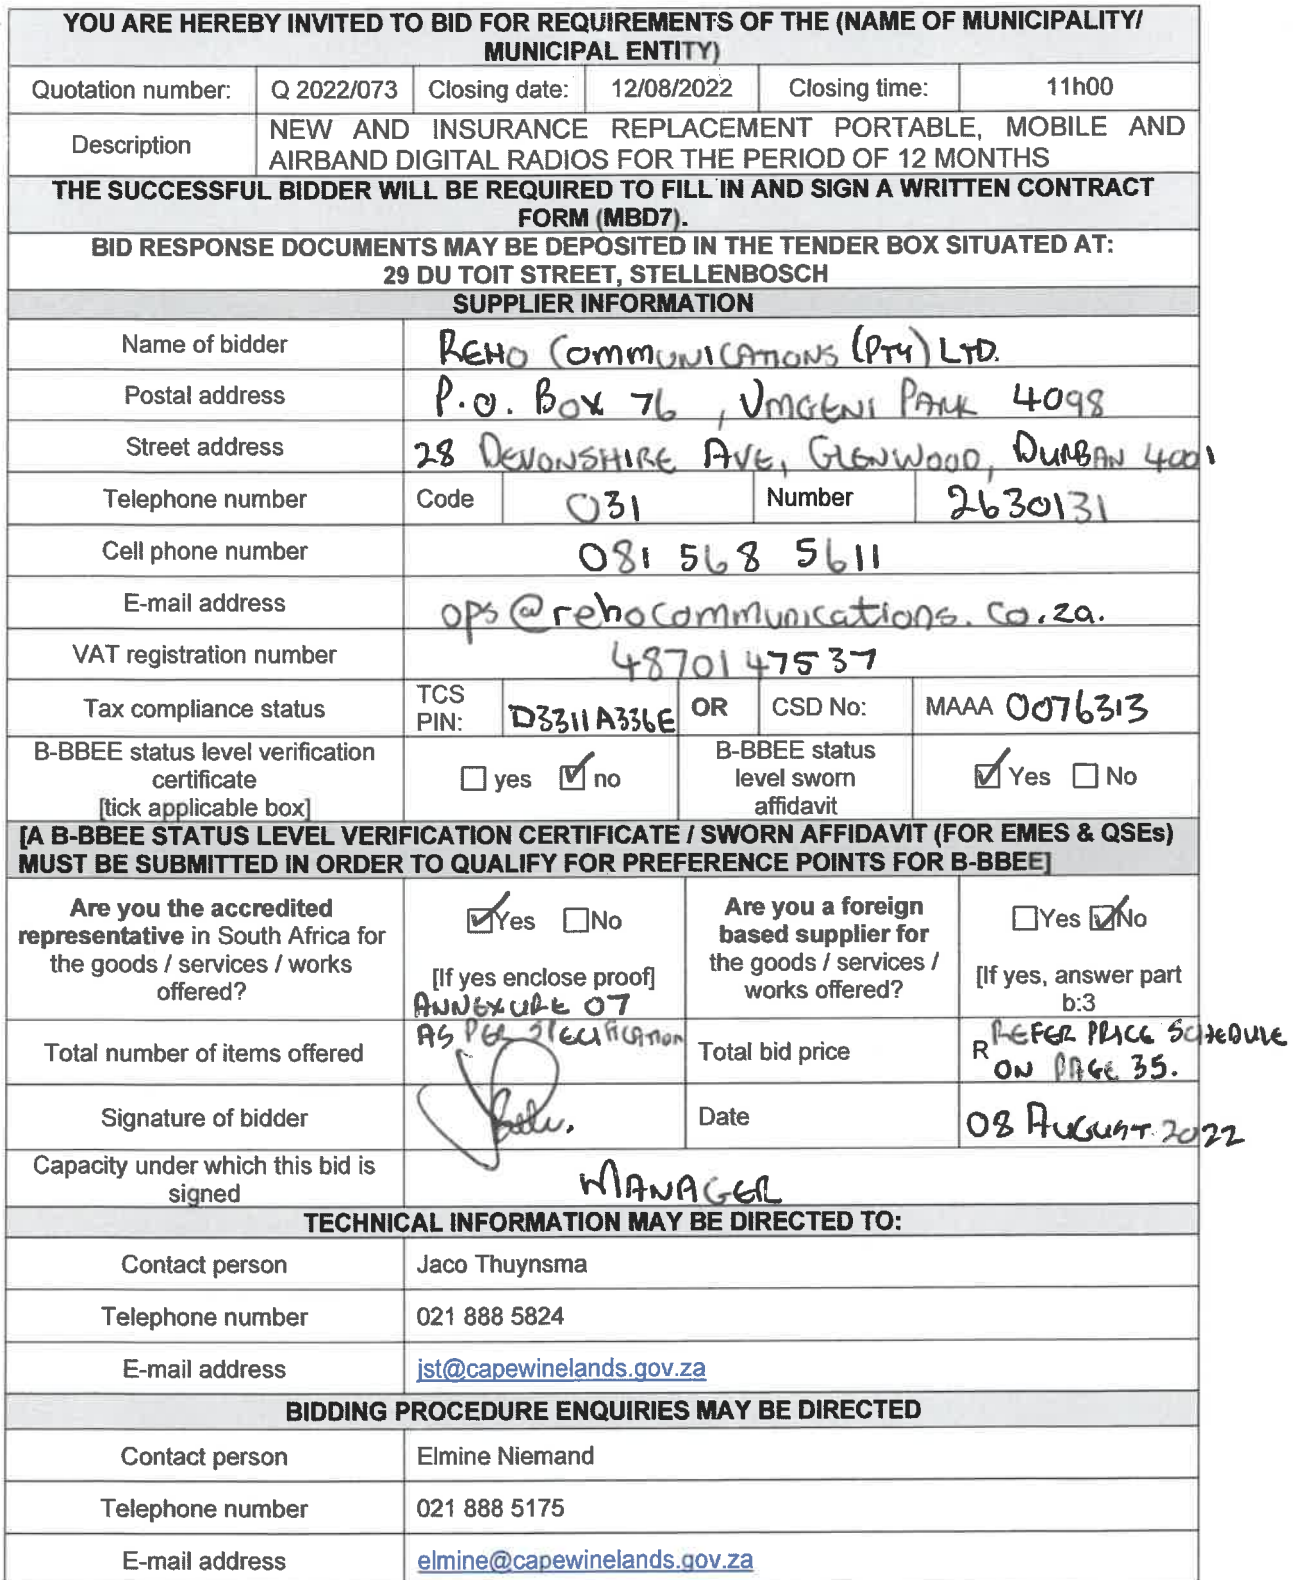 YOU ARE HEREBY INVITED TO BID FOR REQUIREMENTS OF THE (NAME OF MUNICIPALITY/
MUNICIPAL ENTITY)
Quotation number: Q 2022/073 Closing date: 12/08/2022 Closing time: 11h00
Description NEW AND INSURANCE REPLACEMENT PORTABLE, MOBILE AND
AIRBAND DIGITAL RADIOS FOR THE PERIOD OF 12 MONTHS
THE SUCCESSFUL BIDDER WILL BE REQUIRED TO FILL IN AND SIGN A WRITTEN CONTRACT
FORM (MBD7).
BID RESPONSE DOCUMENTS MAY BE DEPOSITED IN THE TENDER BOX SITUATED AT:
29 DU TOIT STREET, STELLENBOSCH
SUPPLIER INFORMATION
Name of bidder REHO COMMUNICATIONS (PTY) LTD.
Postal address P.O. BOX 76, UMGENI PARK 4098
Street address 28 DEVONSHIRE AVE, GLENWOOD, DURBAN 4001
Telephone number Code 031 Number 2630131
Cell phone number 081 568 5611
E-mail address ops@rehocommunications.co.za.
VAT registration number 4870147537
Tax compliance status TCS PIN: D3311A336E OR CSD No: MAAA 0076313
B-BBEE status level verification
certificate
[tick applicable box]
yes no
B-BBEE status
level sworn
affidavit
Yes No
[A B-BBEE STATUS LEVEL VERIFICATION CERTIFICATE / SWORN AFFIDAVIT (FOR EMES & QSEs)
MUST BE SUBMITTED IN ORDER TO QUALIFY FOR PREFERENCE POINTS FOR B-BBEE]
Are you the accredited
representative in South Africa for
the goods / services / works
offered?
Yes No
[If yes enclose proof]
ANNEXURE 07
Are you a foreign
based supplier for
the goods / services /
works offered?
Yes No
[If yes, answer part
b:3
Total number of items offered AS PER SPECIFICATION
Total bid price R REFER PRICE SCHEDULE
ON PAGE 35.
Signature of bidder Date 08 AUGUST 2022
Capacity under which this bid is
signed
MANAGER
TECHNICAL INFORMATION MAY BE DIRECTED TO:
Contact person Jaco Thuynsma
Telephone number 021 888 5824
E-mail address jst@capewinelands.gov.za
BIDDING PROCEDURE ENQUIRIES MAY BE DIRECTED
Contact person Elmine Niemand
Telephone number 021 888 5175
E-mail address elmine@capewinelands.gov.za